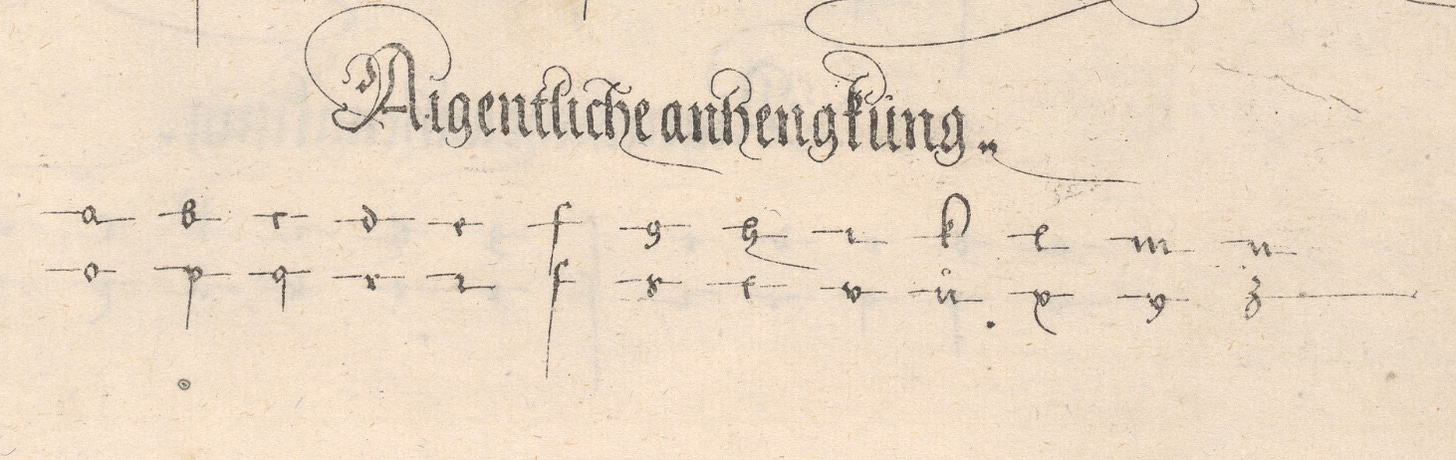 Aigentliche anhengkung.
a b c d e f g h i k l m n
o p q r r ſ s t v ů x y z